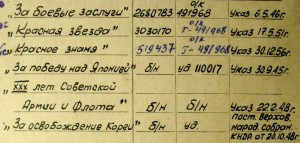 о/к
„За боевые заслуги" 2680783 491968 Указ 6.5.46г.
о/к
„Красная звезда" 3030170 Т-491968 Указ 17.5.51г.
„Красное знамя" 519437 Т-491968 Указ 30.12.56г.
„За победу над Японией" б/н уд. 110017 Указ 30.9.45г.
„XXX лет Советской
Армии и Флота" б/н б/н Указ 22.2.48г.
„За освобождение Кореи" б/н уд. пост. Верхов.
народ. собран.
КНДР от 20.10.48г.